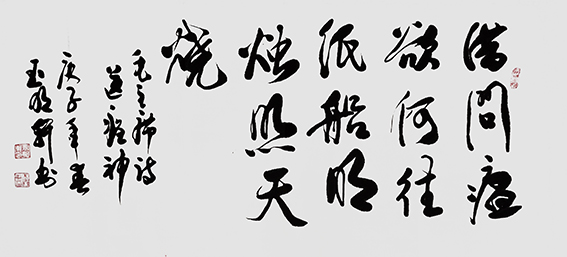 借問瘟
欲何往
纸船明
烛照天
烧
毛主席诗
送瘟神
庚子年春
玉轩书